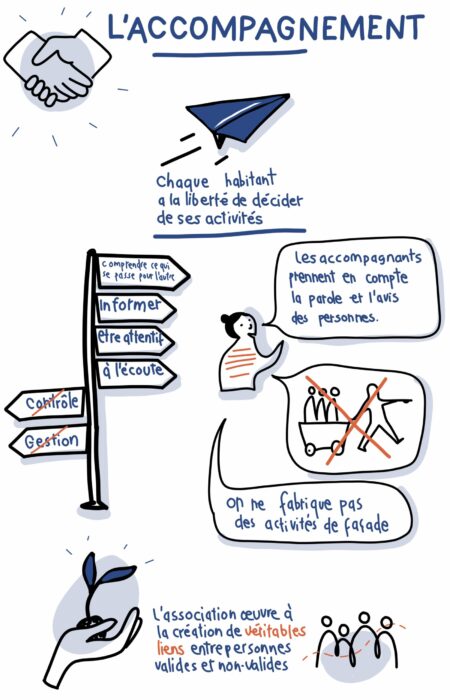 L'ACCOMPAGNEMENT
Chaque habitant
a la liberté de décider
de ses activités
comprendre ce qui
se passe pour l'autre
informer
être attentif
à l'écoute
Contrôle
Gestion
Les accompagnants
prennent en compte
la parole et l'avis
des personnes.
On ne fabrique pas
des activités de façade
L'association œuvre à
la création de véritables
liens entre personnes
valides et non-valides